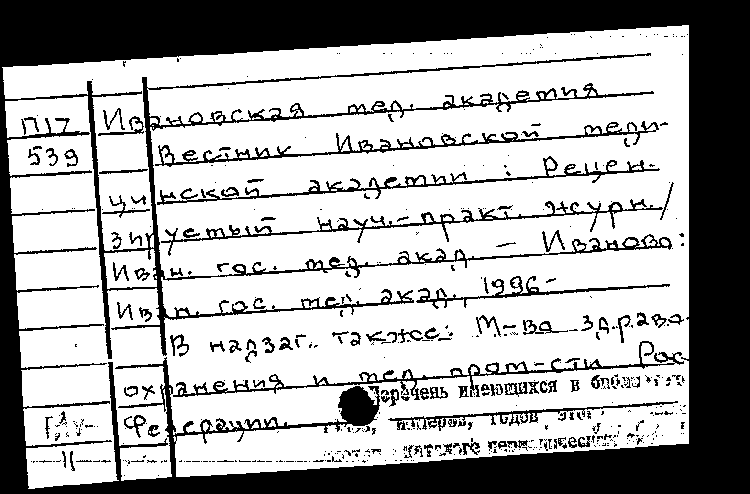 П17 Ивановская мед. академия
539 Вестник Ивановской меди-
цинской академии : Рецен-
зируемый науч.-практ. журн. /
Иван. гос. мед. акад. – Иваново :
Иван. гос. мед. акад., 1996-
В надзаг. также: М-во здраво-
охранения и мед. пром-сти Рос
Перечень имеющихся в
Федерации.
номеров, годов этого
каталоге